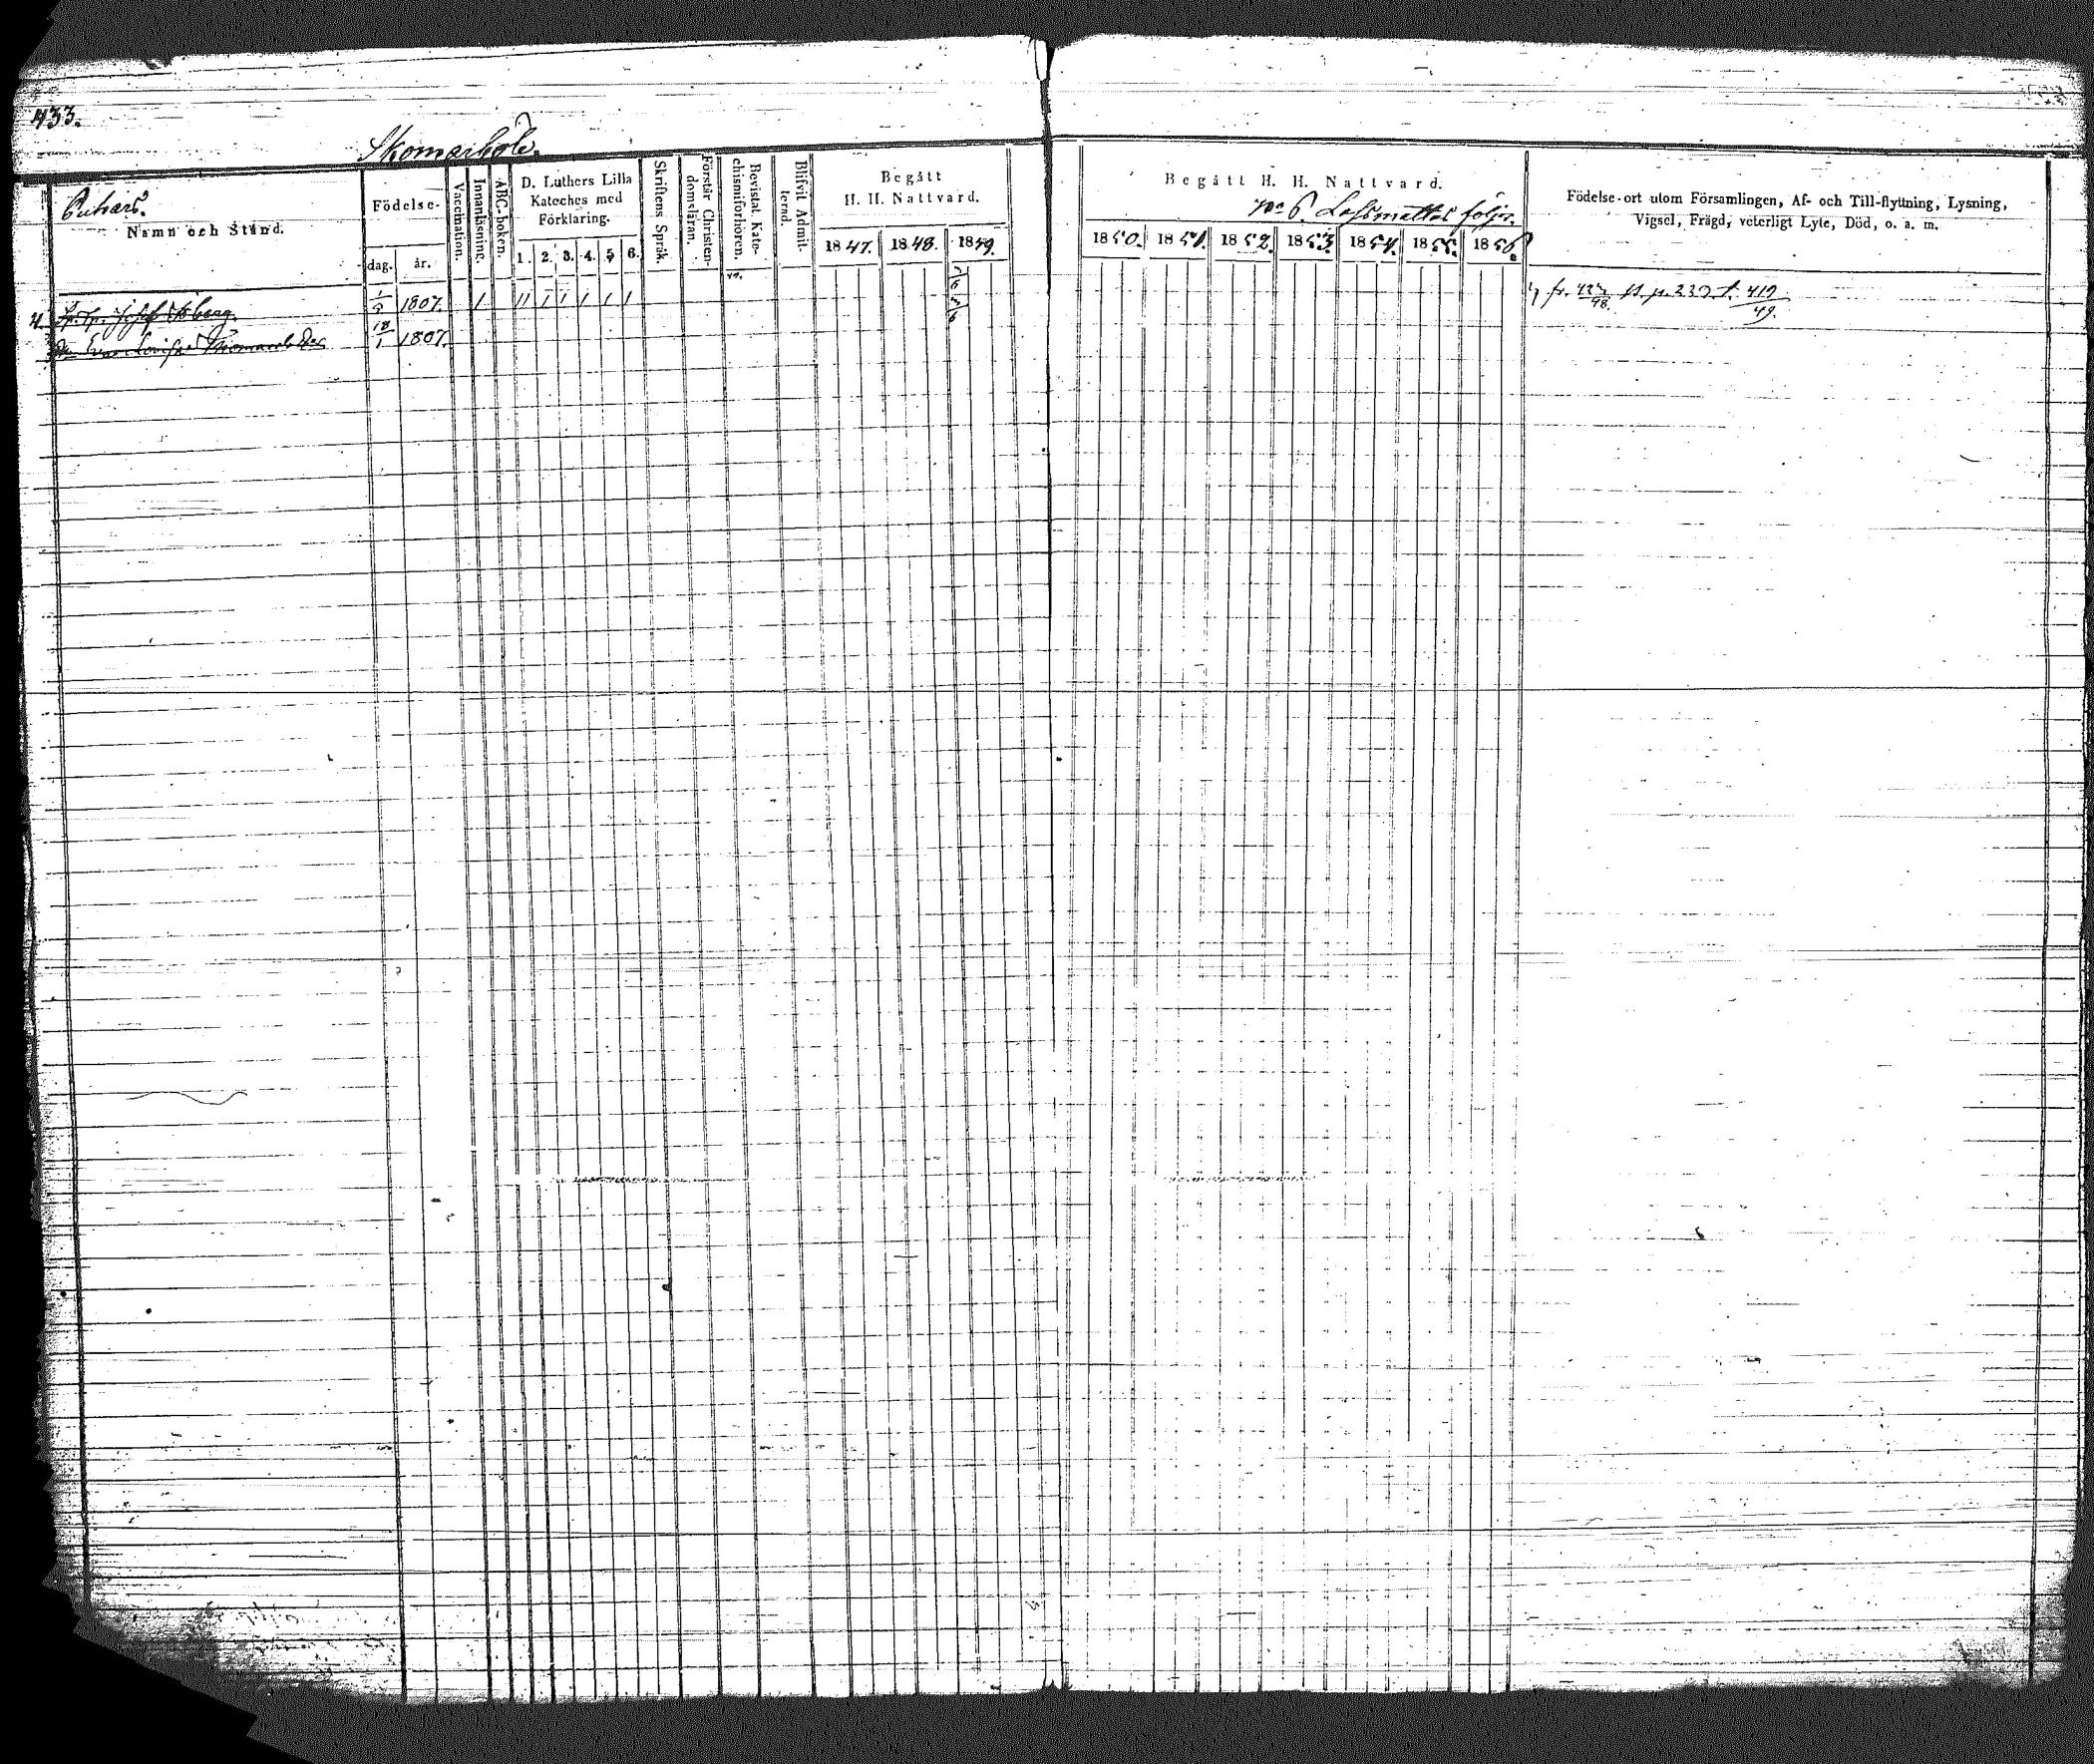 433.
Skomarböle.
Putrars.
Namn och Stånd.
Födelse-
dag.
år.
Vaccination.
Innanläsning.
ABC-boken.
D. Luthers Lilla
Kateches med
Förklaring.
1. 2. 3. 4. 5 6.
Skriftens Språk.
Förstår Christen-
domsläran.
Bevistat Kate-
chismiförhören.
Blifvit Admit-
terad.
Begått
H. H. Nattvard.
1847. 1848. 1849.
Begått H. H. Nattvard.
No 6. följer.
1850. 1851. 1852. 1853. 1854. 1855. 1856.
Födelse-ort utom Församlingen, Af- och Till-flyttning, Lysning,
Vigsel, Frägd, veterligt Lyte, Död, o. a. m.
4. 1807.
18/1 1807.
fr. p. 419/49.